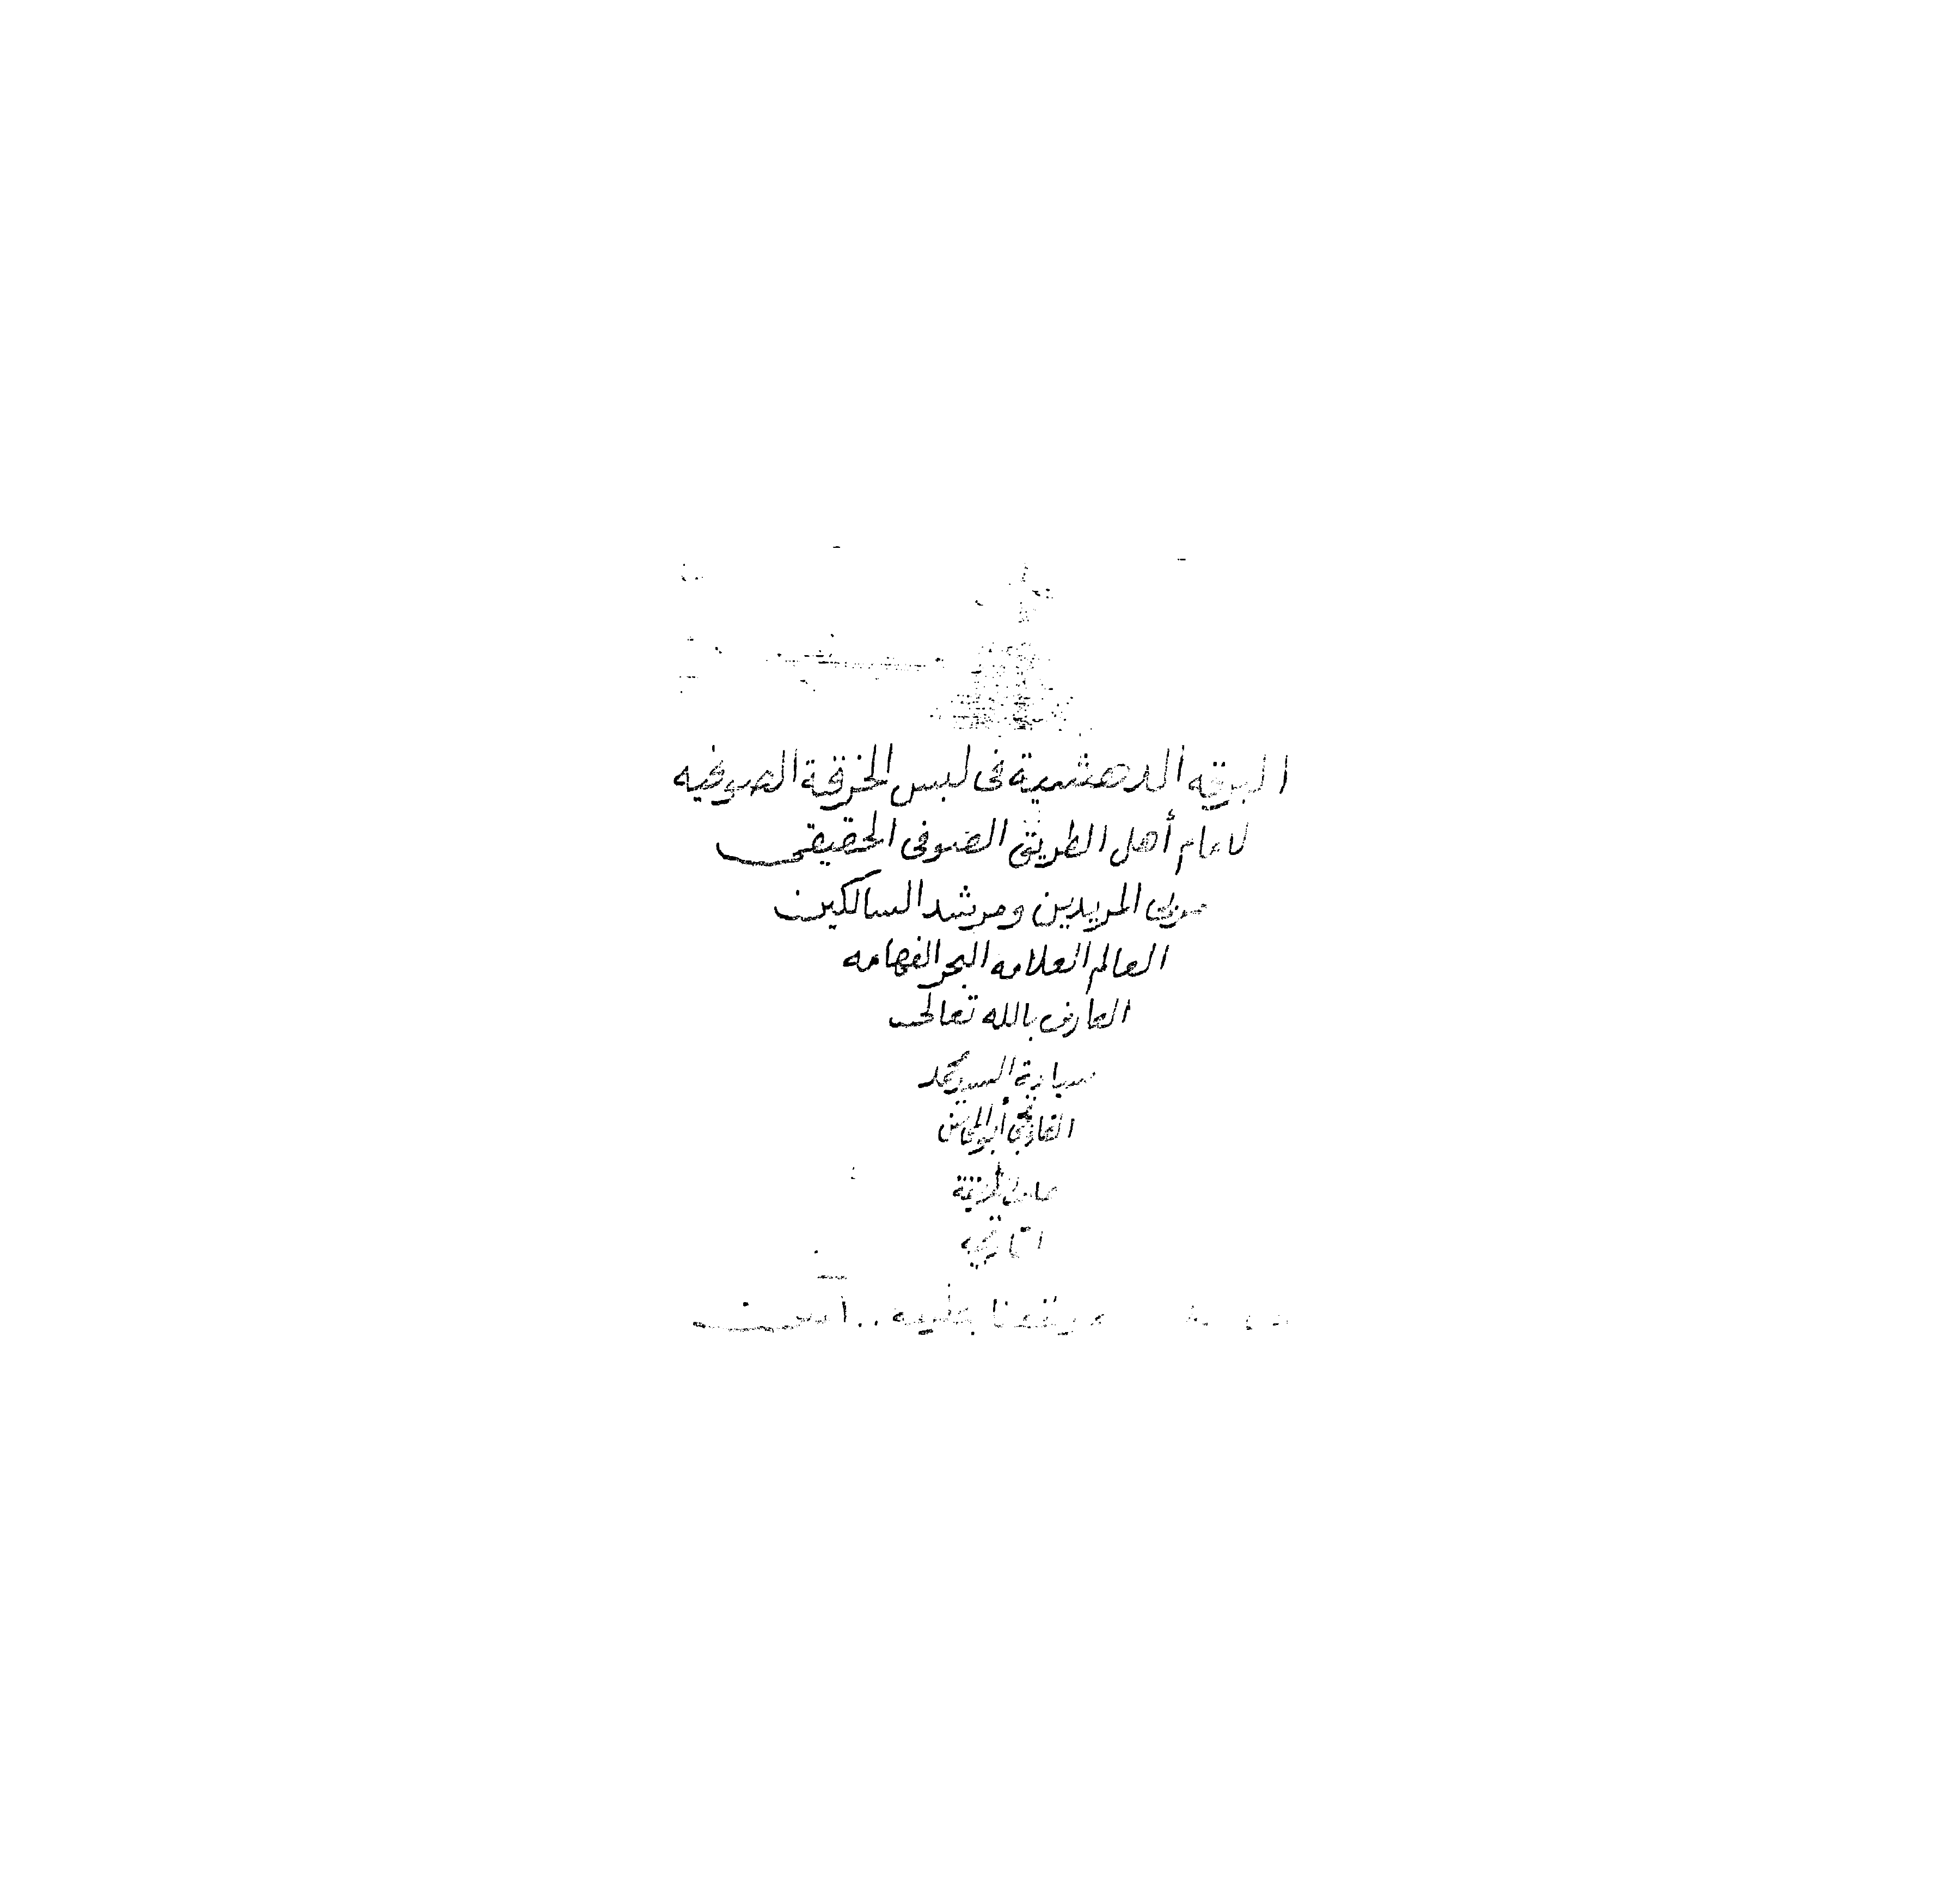 البرقه الدهشية فى لبس الخرقة الصوفيه
لامام أهل الطريق الصوفى الحقيقى
مربى المريدين ومرشد السالكين
العالم العلامه البحر الفهامه
العارف بالله تعالى
سيادة السيد محمد
القاوقجى أبو المحاسن
القاوقجيه
عليه .. آمين